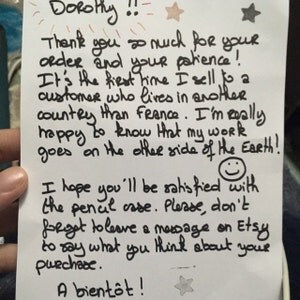 Dorothy !!
Thank you so much for your
order and your patience !
It's the first time I sell to a
customer who lives in another
country than France. I'm really
happy to know that my work
goes on the other side of the Earth !
I hope you'll be satisfied with
the pencil case. Please, don't
forget to leave a message on Etsy
to say what you think about your
purchase.
A bientôt !